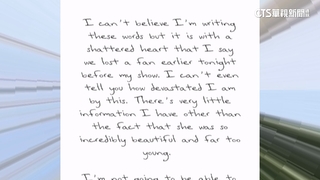 CTS華視新聞
I can't believe I'm writing
these words but it is with a
shattered heart that I say
we lost a fan earlier tonight
before my show. I can't even
tell you how devastated I am
by this. There's very little
information I have other than
the fact that she was so
incredibly beautiful and far too
young.
I'm not going to be able to